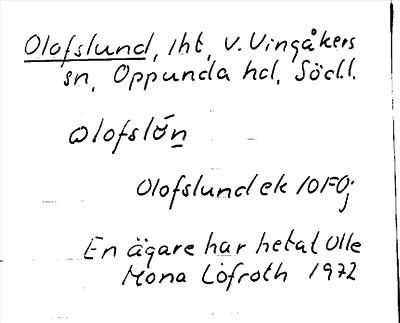 Olofslund, lht, v. Vingåkers
sn, Oppunda hd, Södl.
Olofslǿn
Olofslund ek 10F0j
En ägare har hetat Olle
Mona Löfroth 1972